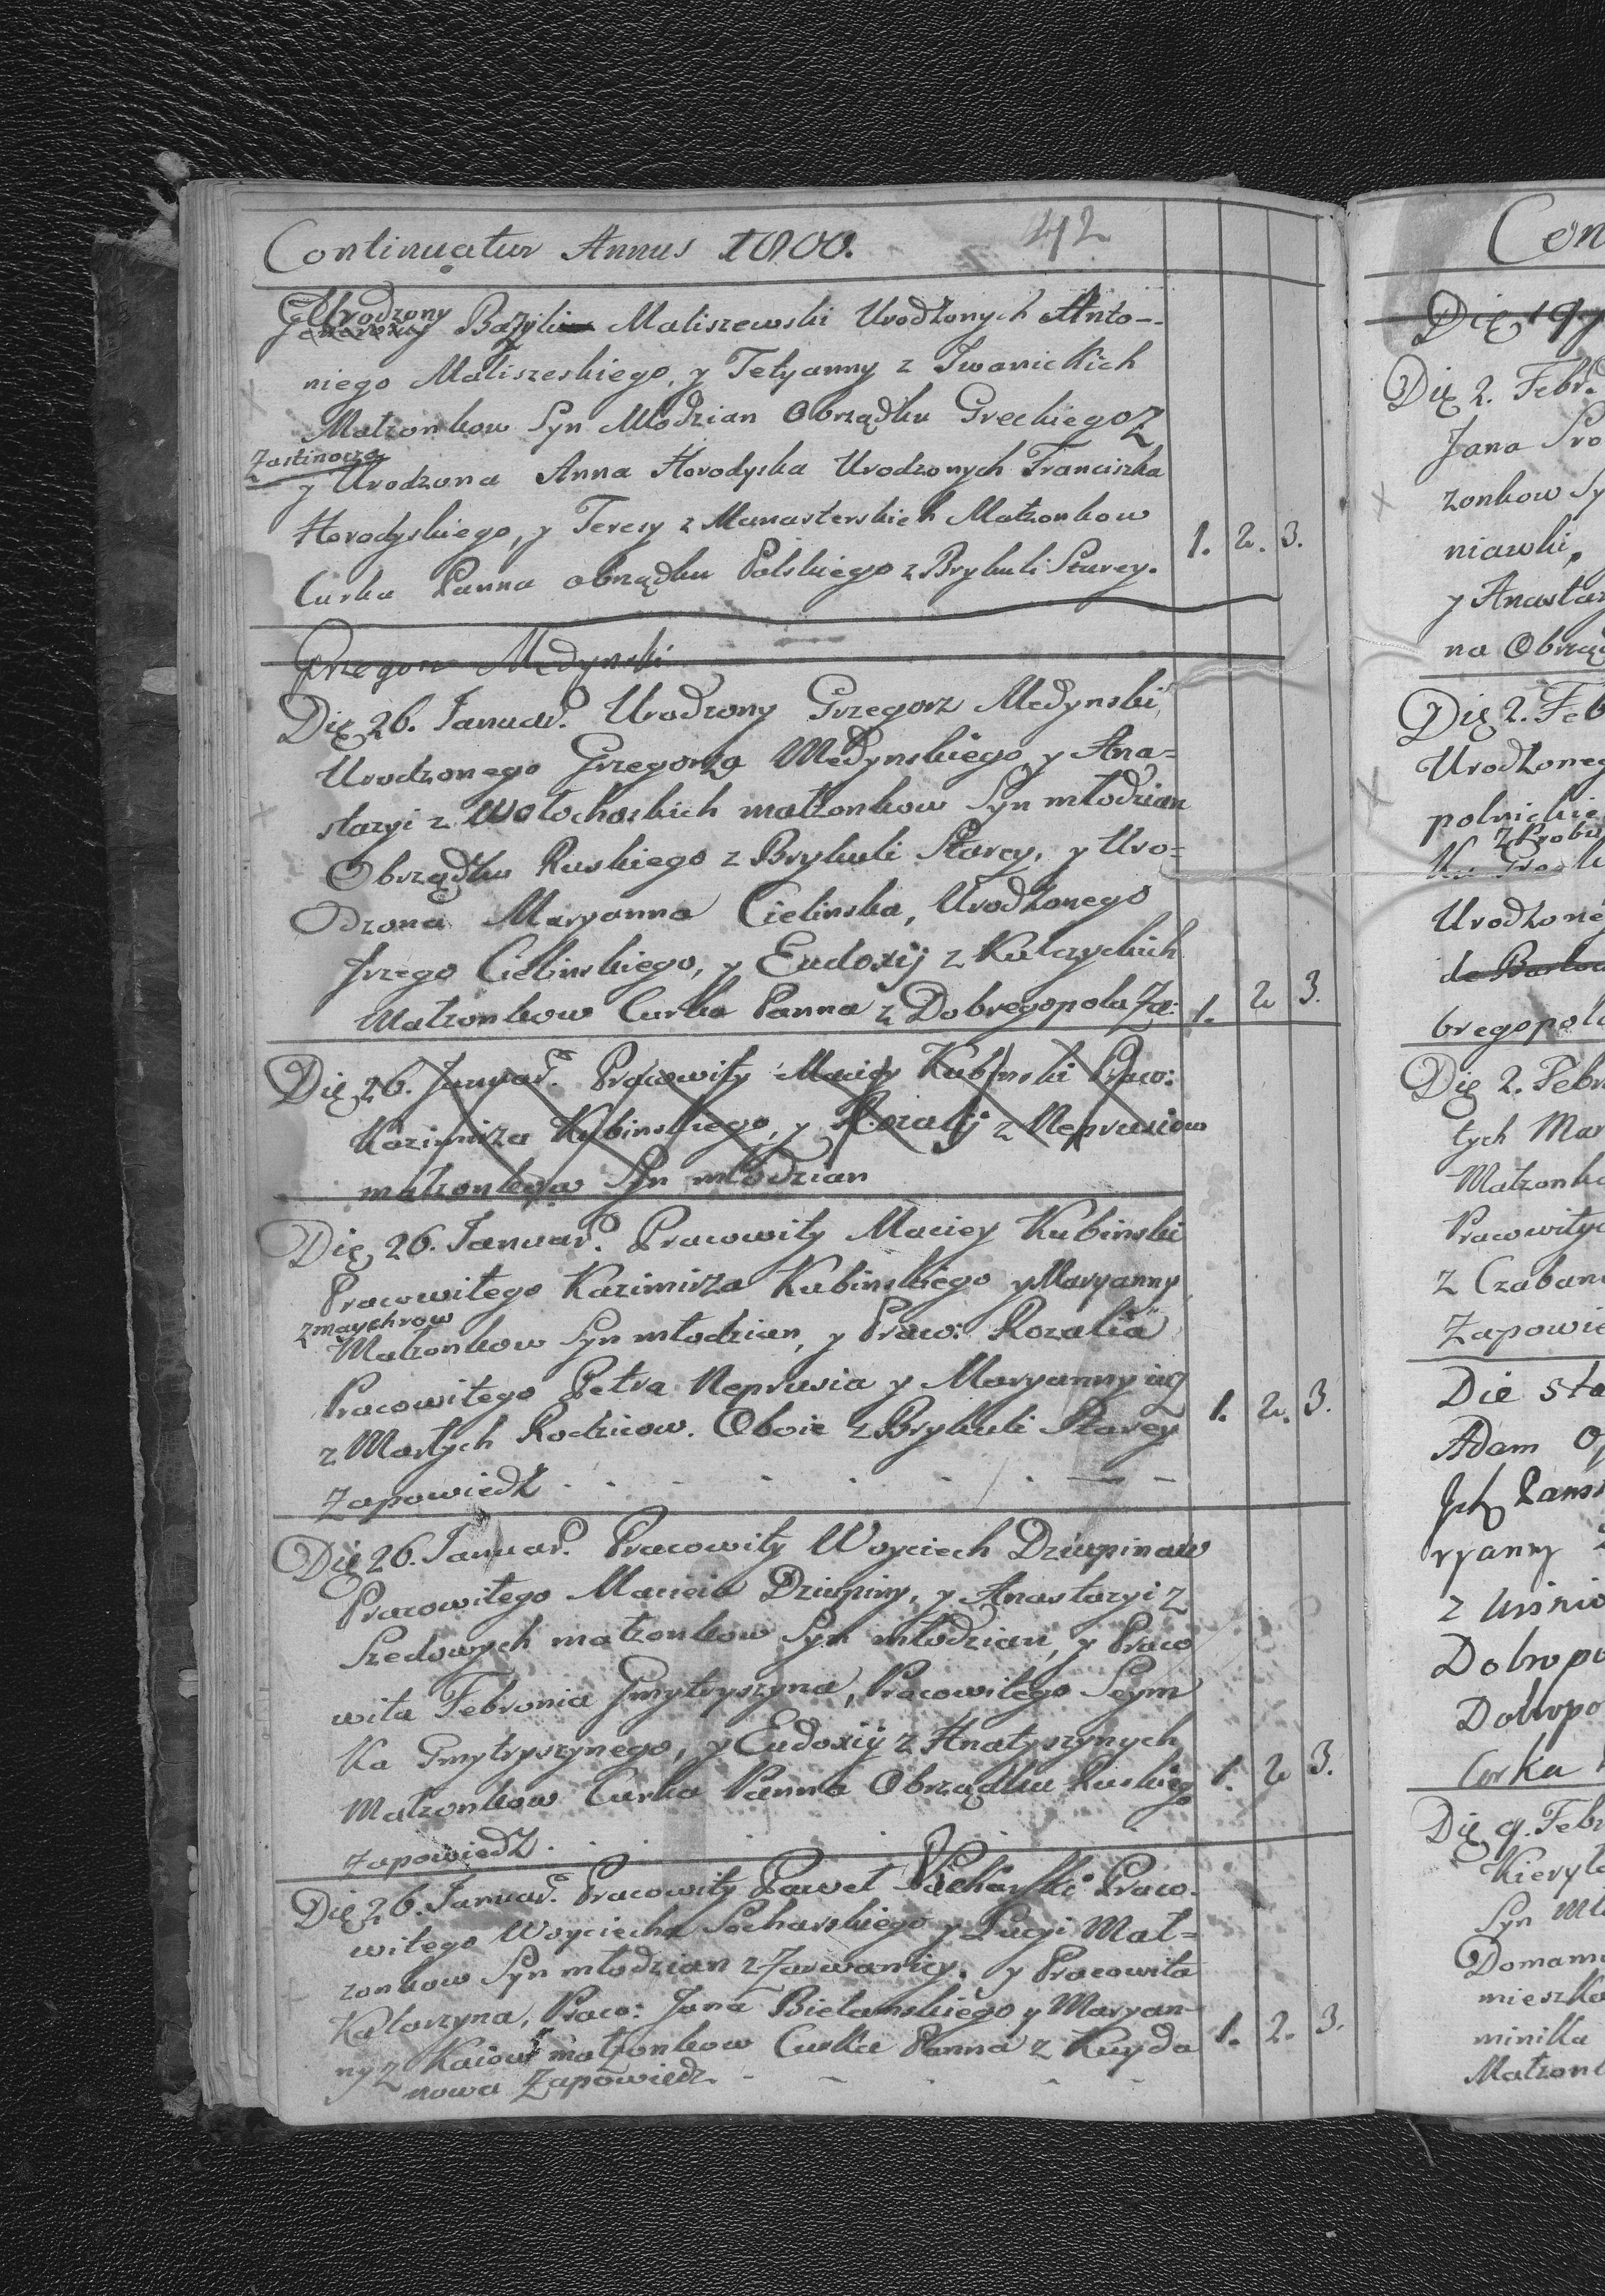 Continuatur Annus 1800. 42
Urodzony Bazyli Maliszewski Urodzonych Anto-
niego Maliszeskiego, y Tetyanny z Iwanickich
Małzonkow Syn Młodzian Obrządku Greckiego z
Zastinocza
y Urodzona Anna Horodyska Urodzonych Franciszka
Horodyskiego, y Teresy z Manasterskich Małzonkow
Curka Panna obrządku Polskiego z Brykuli Starey. 1. 2. 3.
Grzegorz Medynski
Die 26. Januar. Urodzony Grzegorz Medynski,
Urodzonego Grzegorza Medynskiego y Ana=
stazyi z Wołochoskich małzonkow Syn młodzian
Obrządku Ruskiego z Brykuli Starey, y Uro=
dzona Maryanna Cielinska, Urodzonego
Jrzego Cielinskiego, y Eudoxij z Kulczyckich
Małzonkow Curka Panna z Dobregopola Za: 1. 2 3.
Die 26. Januar. Pracowity Maciey Kubinski Praw:
Kazimirza Kubinskiego, y Rozalij z Neprusiow
małzonkow Syn młodzian
Die 26. Januar. Pracowity Maciey Kubinski
Pracowitego Kazimirza Kubinskiego y Maryanny
z maychrow
Małzonkow Syn młodzian, y Praw: Rozalia
Pracowitego Petra Neprusia y Maryanny iuz
z Marłych Rodzicow. Oboie z Brykuli Starey 1. 2. 3.
Zapowiedz . . - . . - . - -
Die 26. Januar. Pracowity Woyciech Dziupinaw
Pracowitego Macieia Dziupiny, y Anastazyi z
Szedowych małzonkow Syn młodzian, y Praco
wita Febronia Gmytryszyna, Pracowitego Seym
ka Gmytryszynego, y Eudoxij z Hnatyszynych
Małzonkow Curka Panna Obrządku Ruskieg 1. 2 3.
zapowiedz . . . . . .
Die 26. Januar. Pracowity Paweł Pieharski Praco.
witego Woyciecha Pocharskiego y Łucyi Mał=
zonkow Syn młodzian z Zarwanicy. y Pracowita
Katarzyna, Praco: Jana Bielamskiego y Maryan-
ny z Kaiow małzonkow Curka Panna z Kuyda 1. 2. 3.
nowa Zapowiedz. - - - - -
Con
Die 19
Die 2. Febr.
Jana
zonkow Sy
niawki,
y Anastaz
na Obrząd
Die 2. Feb
Urodzoneg
polnickie
Urodzone
bregopola
Die 2. Febr
tych Mar
Małzonko
Pracowityc
z Czaban
Zapowie
Die sta
Adam
Dobropo
Dobropo
Curka
Die 9. Febr
Kieryło
Syn Mło
Domam
mieszka
minika
Małzonk